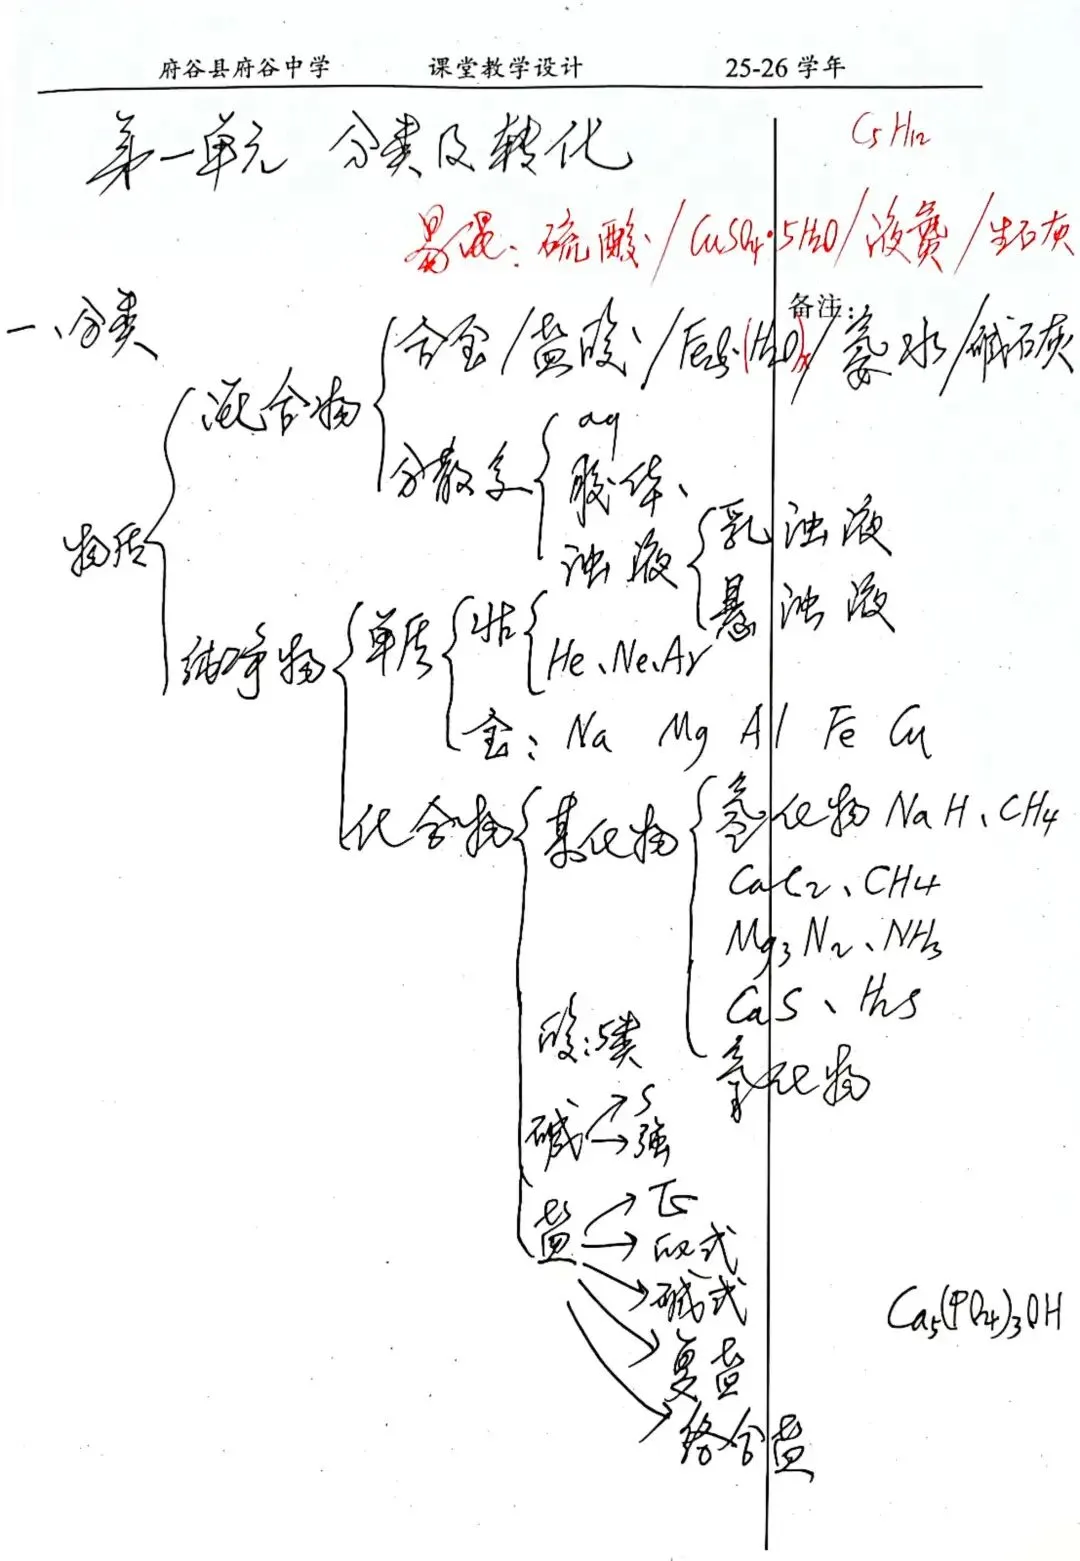 府谷县府谷中学 课堂教学设计 25-26 学年
第一单元 分类及转化
C5H12
易混: 硫酸 / CuSO4·5H2O / 液氨 / 生石灰
备注:
一、分类
合金 / 盐酸 / (H2O)x / 氨水 / 碱石灰
混合物
分散系
aq
胶体、
浊液
乳浊液
悬浊液
物质
纯净物
单质
非
He、Ne、Ar
金: Na Mg Al Fe Cu
化合物
某化物
氢化物 NaH、CH4
CaC2、CH4
Mg3N2、NH3
CaS、H2S
氧化物
酸:5类
碱
强
盐
正
酸式
碱式
Ca5(PO4)3OH
复盐
络合盐